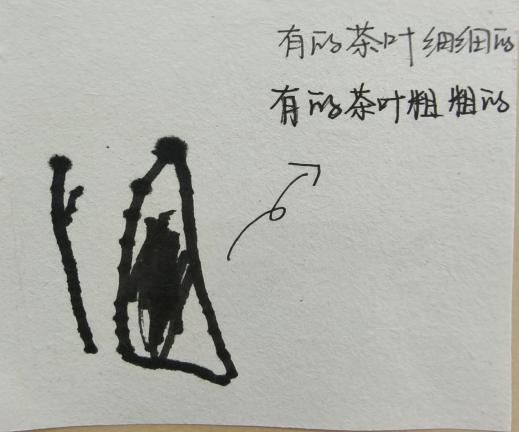 有的茶叶细细的
有的茶叶粗粗的